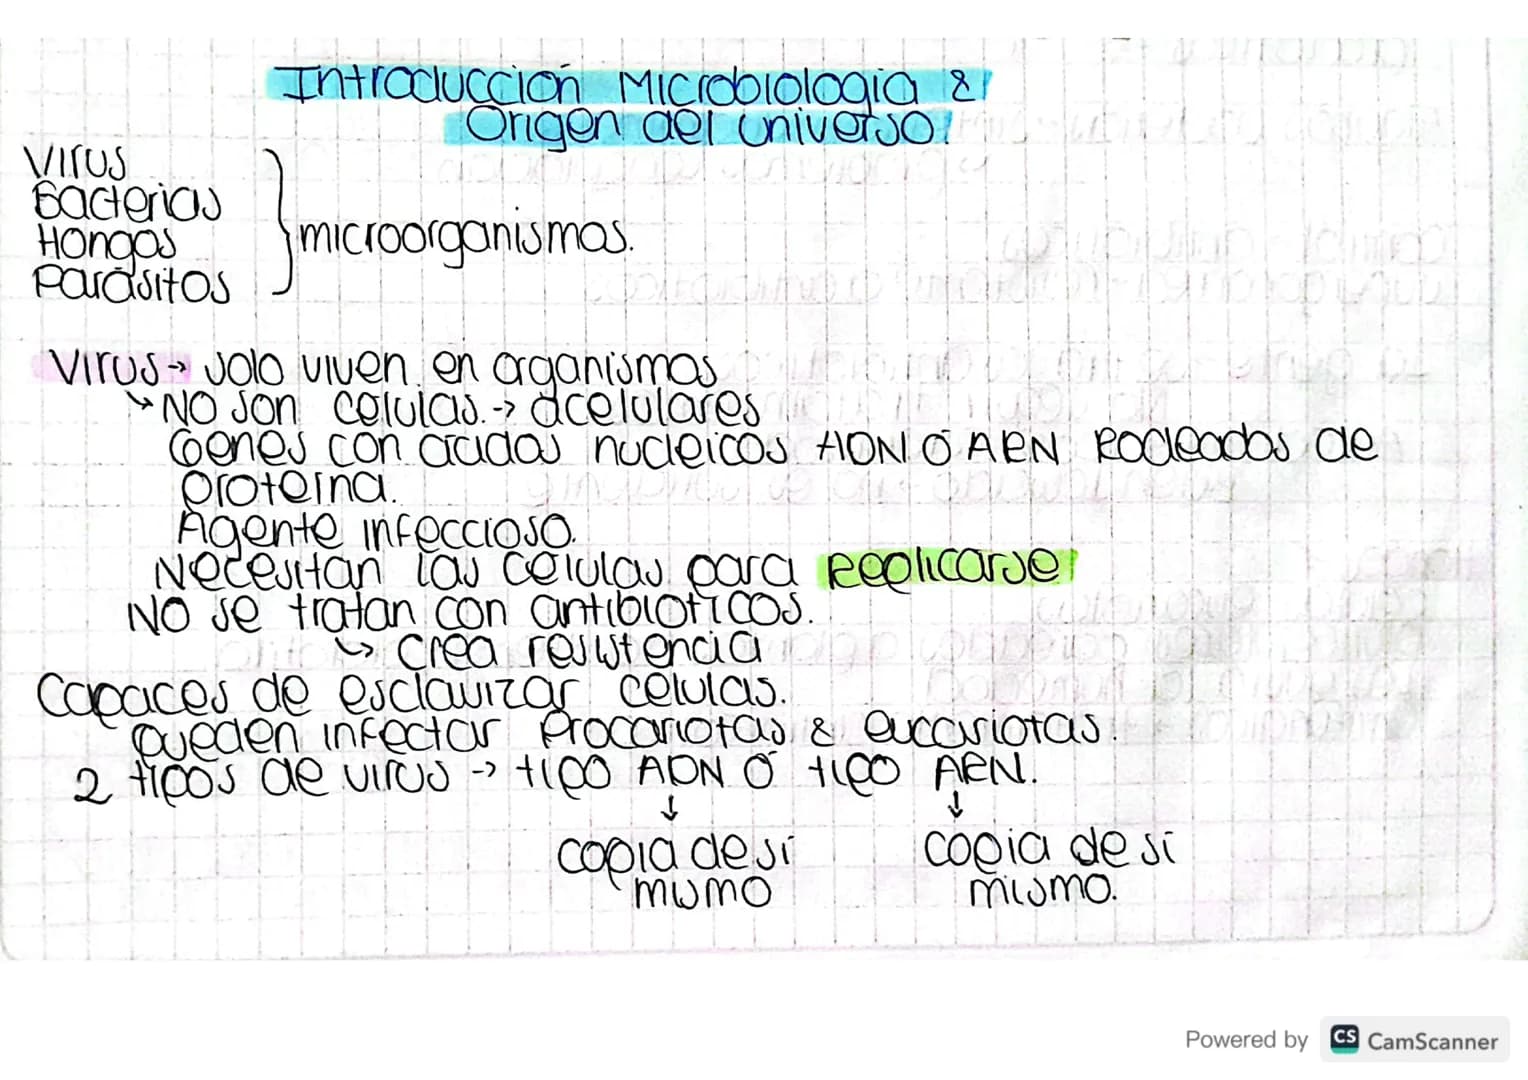 Introducción Microbiologia &
Origen del universo.
Virus
Bacterias
Hongos
Parásitos
microorganismos.
Virus → solo viven en organismos
↳ NO son celulas. → acelulares
Genes con acidos nucleicos ADN Ó ARN Rodeados de
proteina.
Agente infeccioso.
Necesitan las celulas para Replicarse
NO se tratan con antibioticos.
↳ crea resistencia
Capaces de esclavizar celulas.
pueden infectar Procariotas & eucariotas.
2 tipos de virus → tipo ADN Ó tipo ARN.
↓ ↓
copia de si mismo
copia de si mismo.
Powered by CS CamScanner